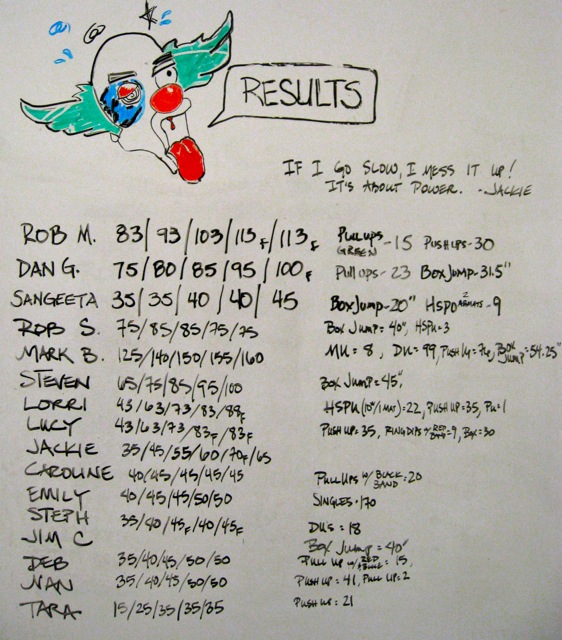 RESULTS
IF I GO SLOW, I MESS IT UP!
IT'S ABOUT POWER. -JACKIE
ROB M. 83/93/103/113F/113F PULLUPS GREEN -15 PUSHUPS-30
DAN G. 75/80/85/95/100F PULLUPS-23 BOX JUMP-31.5"
SANGEETA 35/35/40/40/45 BOX JUMP-20" HSPU 2 ABMATS-9
ROB S. 75/85/85/75/75 BOX JUMP=40", HSPU=3
MARK B. 125/140/150/155/160 MU=8, DU=99, PUSH UP=74, BOX JUMP=54.25"
STEVEN 65/75/85/95/100 BOX JUMP=45"
LORRI 43/63/73/83/88F HSPU (10#/1 MAT)=22, PUSH UP=35, PU=1
LUCY 43/63/73/83F/83F PUSH UP=35, RING DIPS W/RED BAND=9, BOX=30
JACKIE 35/45/55/60/70F/65
CAROLINE 40/45/45/45/45 PULLUPS W/BLACK BAND=20
EMILY 40/45/45/50/50 SINGLES=170
STEPH 35/40/45F/40/45F DUS=18
JIM C BOX JUMP=40"
DEB 35/40/45/50/50 PULL UP W/RED + BLUE=15,
NAN 35/40/45/50/50 PUSH UP=41, PULL UP=2
TARA 15/25/35/35/35 PUSH UP=21